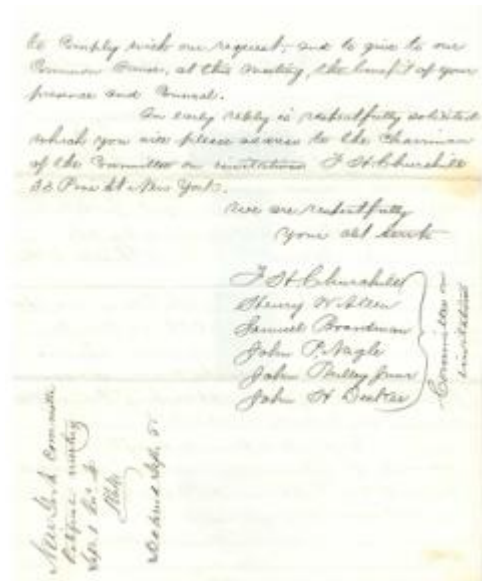 to Comply with our request, and to give to our
Common Cause, at this meeting, the benefit of your
presence and Counsel.
An early reply is respectfully solicited
which you will please address to the Chairman
of the Committee on invitations F H Churchill
33 Pine St New York.
We are respectfully
Your obt Servts
F H Churchill
Henry W Allen
Samuel Boardman
John P. Nagle
John Junr
John H
Committee on
invitations
New York Committee
meeting
Sept
Sept. 5